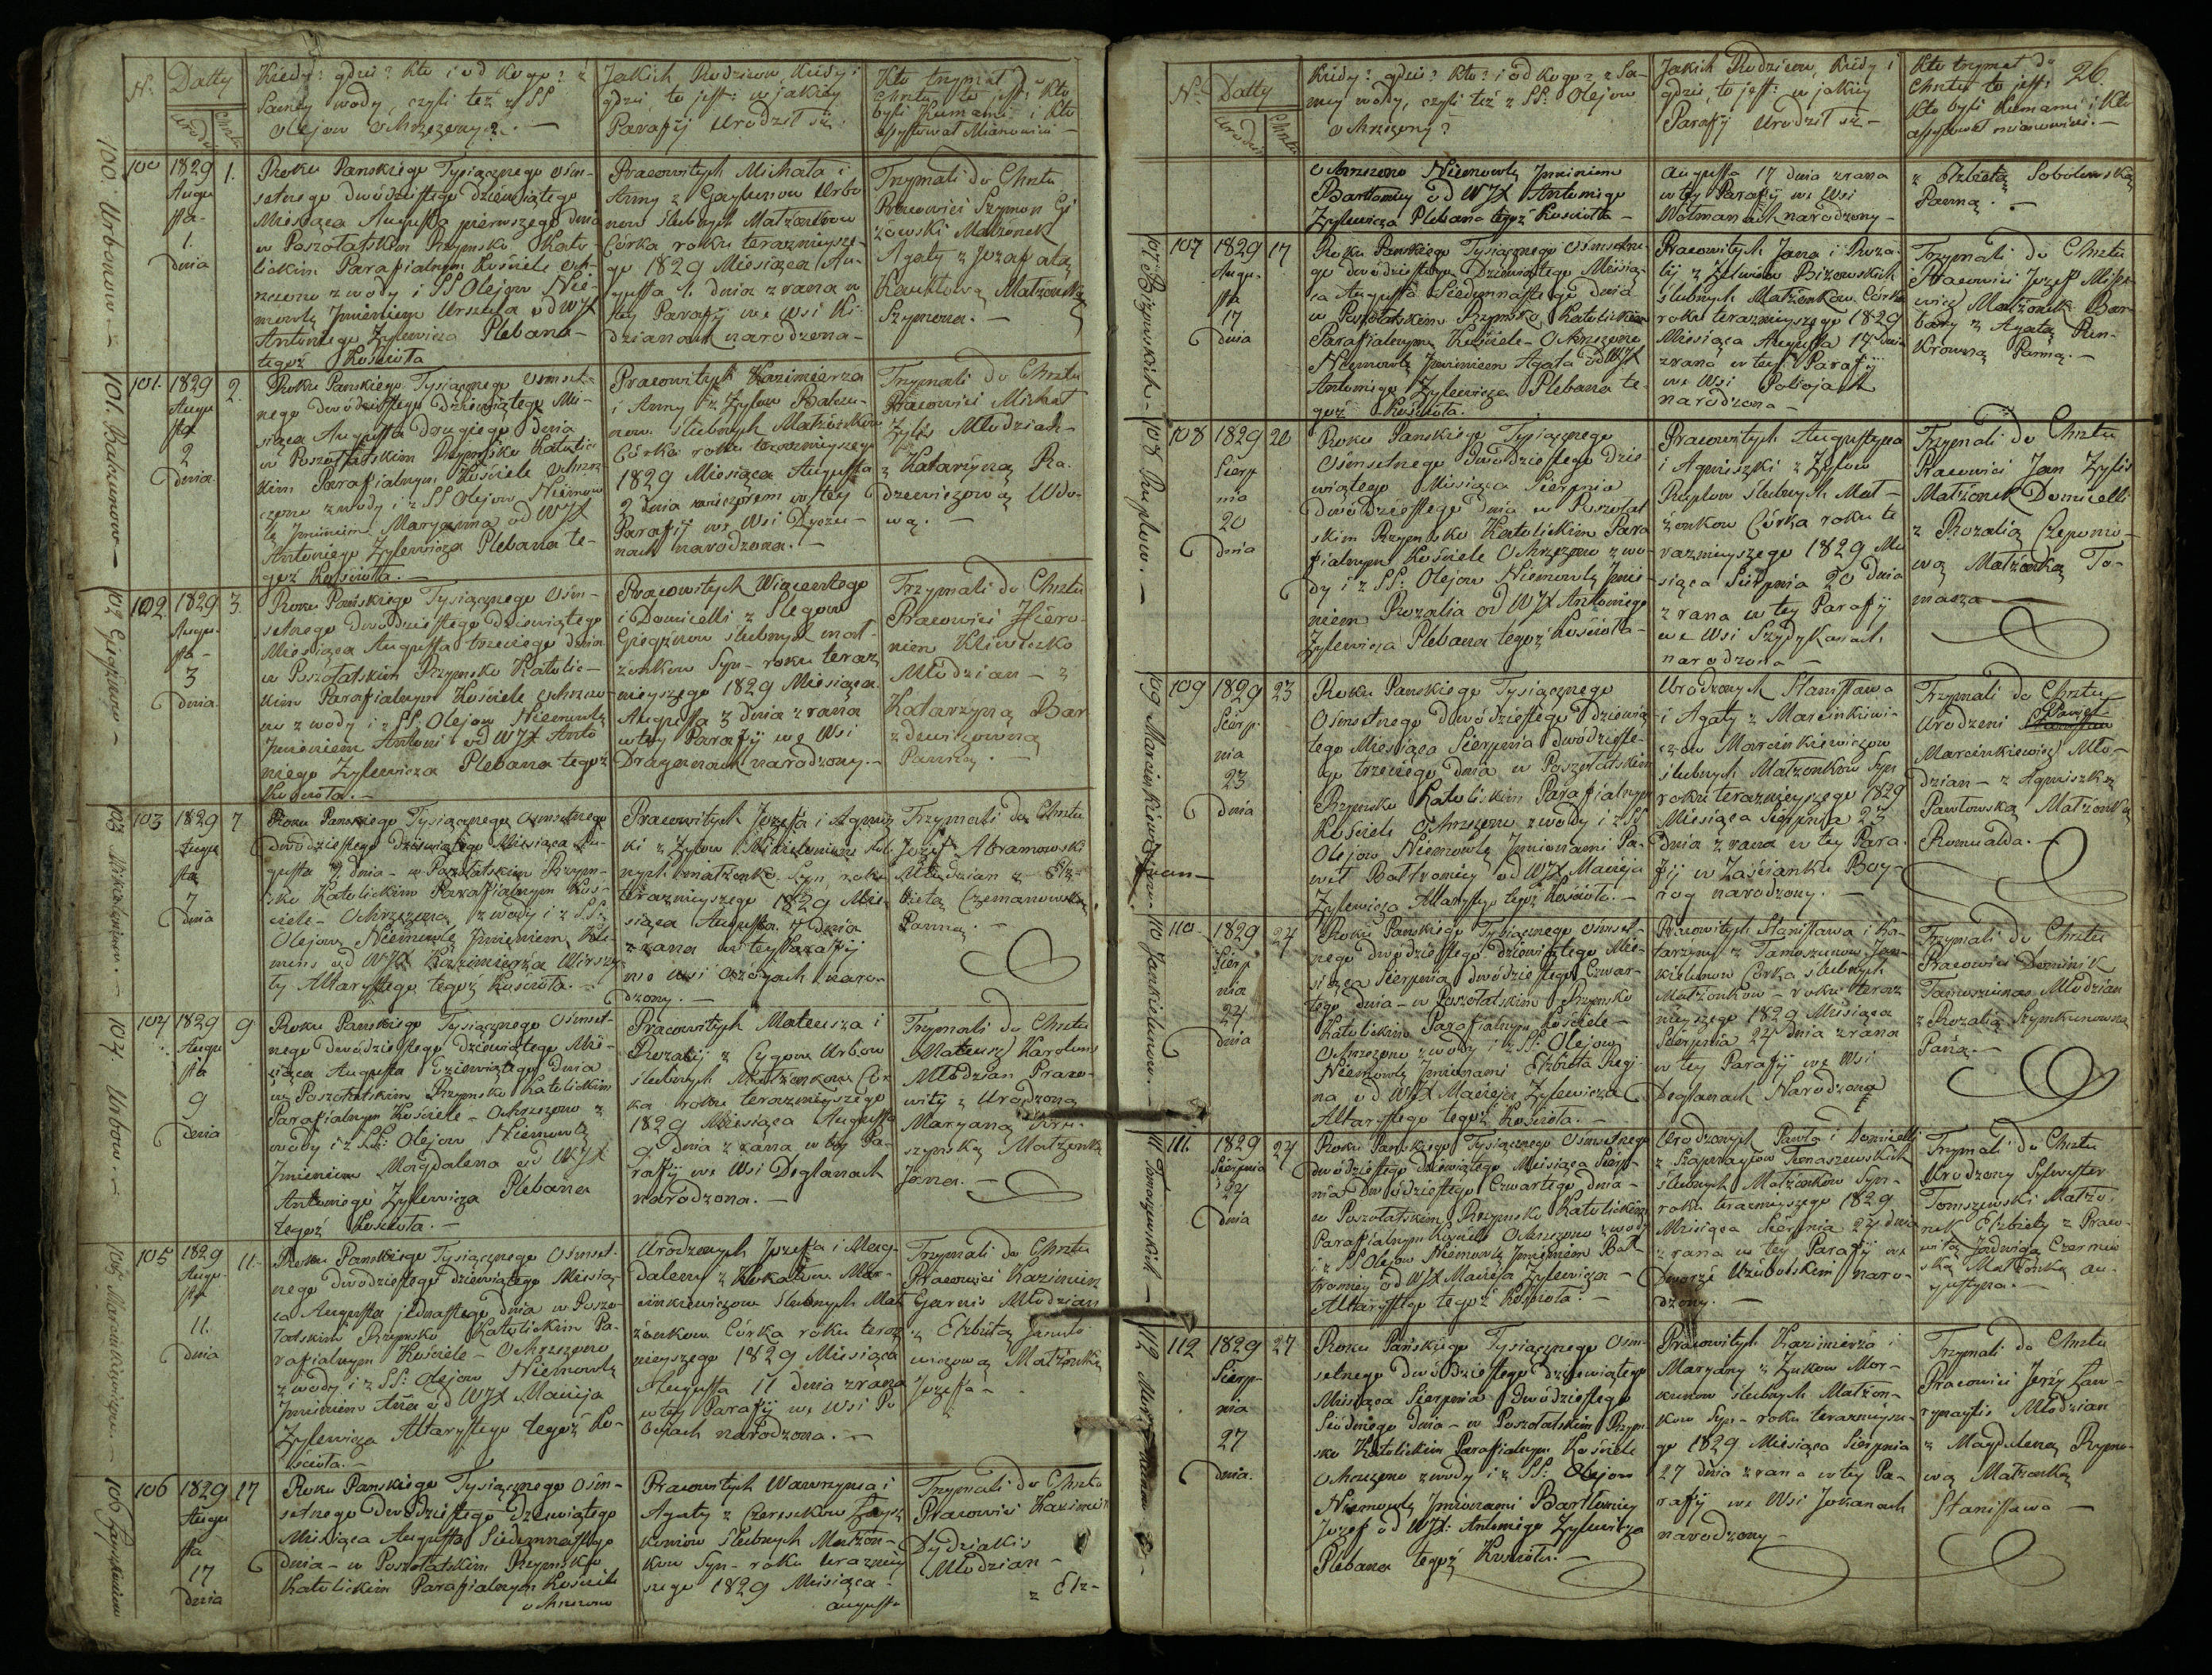 N.
Datty
Urodz.
Chrztu
Kiedy? gdzie? Kto i od kogo? z
Samey wody, czyli też z SS
Olejow ochrzczony?. —
Jakich Rodzicow, Kiedy i
gdzie, to jest: w jakiey
Parafij Urodził się.
Kto trzymał do
Chrztu to jest: Kto
byli Kumami i Kto
assystował mianowicie —
100
1829
Augu
sta
1.
dnia
1.
Roku Panskiego Tysiącznego ośm-
setnego dwódziestego dziewiątego
Miesiąca Augusta pierwszego dnia
w Poszołatskim Rzymsko Kato-
lickim Parafialnym Kościele och-
rzczono z wody i SS Olejow Nie-
mowlę Jmieniem Urszula od WJX
Antoniego Zylewicza Plebana —
tegoż Kościoła
Pracowitych Michała i
Anny z Urbo
now Ślubnych Małżonkow
Córka roku teraznieysze-
go 1829 Miesiąca Au-
gusta 1. dnia z rana w
tey Parafij we Wsi Ki
dzianach narodzona —
Trzymali do Chrztu
Pracowici Szymon
Małżonek
Agaty z Jozefatą
Małżonką
Szymona. —
100. Urbonow. —
101.
1829
Augu
sta
2
dnia
2.
Roku Panskiego Tysiącznego ośmset-
nego dwódziestego dziewiątego Mie-
siąca Augusta drugiego dnia
w Poszołatskim Rzymsko Katolic-
kim Parafialnym Kościele ochrz-
czono z wody i z SS Olejow Niemow
lę Jmieniem Maryanna od WJX
Antoniego Zylewicza Plebana te-
goż Kościoła. —
Pracowitych Kazimierza
i Anny z Zylow Bakszu-
now. ślubnych Małżonkow
Córka roku teraznieyszego
1829 Miesiąca Augusta
2 dnia wieczorem w tey
Parafij we Wsi
nach narodzona. —
Trzymali do Chrztu
Pracowici Michał
Zylis Młodzian —
z Katarzyną Ra-
dzewiczową Wdo-
wą. —
102.
1829
Augu-
sta —
3
dnia.
3.
Roku Pańskiego Tysiącznego Ośm-
setnego dwódziestego dziewiątego
Miesiąca Augusta trzeciego dnia
w Poszołatskim Rzymsko Katolic-
kim Parafialnym Kościele ochrzczo-
no z wody i z SS. Olejow Niemowlę
Jmieniem Antoni od WJX Anto
niego Zylewicza Plebana tegoż
Kościoła. —
Pracowitych Wincentego
i Domicelli z Slegow
ślubnych mał-
żonkow Syn — roku teraz
nieyszego 1829 Miesiąca
Augusta 3 dnia z rana
w tey Parafij we Wsi
Draganach narodzony. —
Trzymali do Chrztu
Pracowici Hiero-
nim
Młodzian — z
Katarzyną Bar
zdewiczowną
Panną. —
103
1829
Augu
sta
7
dnia
7.
Roku Panskiego Tysiącznego ośmsetnego
dwódziestego dziewiątego Miesiąca Au-
gusta 7. dnia — w Poszołatskim Rzym-
sko Katolickim Parafialnym Koś-
ciele — Ochrzczono z wody i z SS:
Olejow Niemowlę Jmieniem Kle-
mens od WJX Kazimierza Wirszy
ty Altarystego tegoż Kościoła. —
Pracowitych Jozefa i Agnisz
ki z Zylow Mikielunow
nych małżonko. Syn, roku
teraznieyszego 1829 Mie-
siąca Augusta. 7 dnia
z rana w tey Parafij
we wsi naro-
dzony. —
Trzymali do Chrztu
Jozef Abramowski
Młodzian z Elż-
bietą Czemanowską
Panną. —
104
1829
Augu
sta
9
dnia
9
Roku Panskiego Tysiącznego ośmset-
nego dwódziestego dziewiątego Mie-
siąca Augusta dziewiątego dnia
w Poszołatskim Rzymsko Katolickim
Parafialnym Kościele — Ochrzczono z
wody i z SS: Olejow Niemowlę
Jmieniem Magdalena od WJX
Antoniego Zylewicza Plebana
tegoż Kościoła. —
Pracowitych Mateusza i
Rozalij z Cygow Urbow
ślubnych Małżonkow Cór
ka roku teraznieyszego
1829 Miesiąca Augusta
9 dnia z rana w tey Pa-
rafij we Wsi Deglanach
narodzona. —
Trzymali do Chrztu
Mateusz Karolunis
Młodzian Praco-
wity z Urodzoną
Maryaną
Małżonką
Jana. —
104. Urbow. —
105
1829
Augu-
sta
11.
dnia
11.
Roku Panskiego Tysiącznego Ośmset-
nego dwódziestego dziewiątego Miesią-
ca Augusta jednastego dnia w Poszo-
łatskim Rzymsko Katolickim Pa-
rafialnym Kościele — Ochrzczono
z wody i z SS: Olejow Niemowlę
Jmieniem Ańa od WJX Macieja
Zylewicza Altarystego tegoż Ko-
ścioła. —
Urodzonych Jozefa i Mag-
daleny z Mar-
cinkiewiczow ślubnych Mał
żonkow Córka roku teraz
nieyszego 1829 Miesiąca
Augusta 11 dnia z rana
w tey Parafij we Wsi Po
narodzona. —
Trzymali do Chrztu
Pracowici Kazimierz
Młodzian
z Elżbietą
Małżonką
Jozefa —
106
1829
Augu
sta
17
dnia
17
Roku Panskiego Tysiącznego ośm-
setnego dwódziestego dziewiątego
Miesiąca Augusta Siedmnastego
dnia — w Poszołatskim Rzymsko
Katolickim Parafialnym Kościele
ochrzczono
Pracowitych Wawrzynca i
Agaty z
Ślubnych Małżon-
kow Syn — roku terazniey
szego 1829 Miesiąca
augusta
Trzymali do Chrztu
Pracowici Kazimierz
Dydziakis
Młodzian —
z Elż-
26
N.
Datty
Urodzin
Chrztu
Kiedy? gdzie? Kto? i od kogo? z Sa-
mey wody, czyli też z SS: Olejow
ochrzczony?
Jakich Rodzicow, Kiedy i
gdzie, to jest: w jakiey
Parafij Urodził się —
Kto trzymał do
Chrztu to jest:
Kto byli Kumami i Kto
assystował mianowicie. —
ochrzczono Niemowlę Jmieniem
Bartłomiey od WJX Antoniego
Zylewicza Plebana tegoż Kościoła —
Augusta 17 dnia z rana
w tey Parafij we Wsi
Wolmanach narodzony —
z Elżbietą Sobolewską
Panną. —
107
1829
Augu-
sta
17
dnia
17
Roku Panskiego Tysiącznego Ośmsetne-
go dwódziestego Dziewiątego Miesią-
ca Augusta Siedmnastego dnia
w Poszołatskim Rzymsko Katolickim
Parafialnym Kościele — Ochrzczono
Niemowlę Jmieniem Agata od WJX
Antoniego Zylewicza Plebana te-
goż Kościoła.
Pracowitych Jana i Roza-
lij z Bizowskich
ślubnych Małżonkow Córka
roku teraznieyszego 1829
Miesiąca Augusta 17 dnia
z rana w tey Parafij
we Wsi Pokojach
narodzona —
Trzymali do Chrztu
Pracowici Jozef
Małżonek Bar-
bary z Agatą
Panną. —
108
1829
Sierp
nia
20
dnia
20
Roku Panskiego Tysiącznego
Ośmsetnego Dwódziestego Dzie
wiątego Miesiąca Sierpnia
dwódziestego dnia w Poszołat
skim Rzymsko Katolickim Para
fialnym Kościele Ochrzczono z wo-
dy i z SS: Olejow Niemowlę Jmie-
niem Rozalia od WJX Antoniego
Zylewicza Plebana tegoż Kościoła —
Pracowitych Augustyna
i Agniszki z Zylow
Ruplow ślubnych Mał-
żonkow Córka roku te
raznieyszego 1829 Mie
siąca Sierpnia 20 dnia
z rana w tey Parafij
we Wsi Szydykanach
narodzona —
Trzymali do Chrztu
Pracowici Jan Zylis
Małżonek Domicelli
z Rozalią Czepono-
wą Małżonką To-
masza —
108 Ruplow. —
109
1829
Sierp-
nia
23
dnia
23
Roku Panskiego Tysiącznego
Ośmsetnego dwódziestego dziewią-
tego Miesiąca Sierpnia dwódzieste-
go trzeciego dnia w Poszołatskim
Rzymsko Katolickim Parafialnym
Kościele Ochrzczono z wody i z SS
Olejow Niemowlę Jmionami Pa-
weł Bałtromiey od WJX Macieja
Zylewicza Altarystego tegoż Kościoła. —
Urodzonych Stanisława
i Agaty z Marcinkiewi-
czow Marcinkiewiczow
ślubnych Małżonkow Syn
roku teraznieyszego 1829
Miesiąca Sierpnia 23
dnia z rana w tey Para-
fij w Zaścianku Boy-
rog narodzony. —
Trzymali do Chrztu
Urodzeni Paweł
Marcinkiewicz Mło-
dzian — z Agniszką
Pawłowską Małżonką
Romualda. —
110
1829
Sierp
nia
24
dnia
24
Roku Panskiego Tysiącznego ośmset-
nego dwódziestego dziewiątego Mie-
siąca Sierpnia dwódziestego Czwar-
tego dnia — w Poszołatskim Rzymsko
Katolickim Parafialnym Kościele —
Ochrzczono z wody i z SS: Olejow
Niemowlę Jmionami Elżbieta Regi-
na od WJX Macieja Zylewicza
Altarystego tegoż Kościoła. —
Pracowitych Stanisława i Ka-
tarzyny z Tamoszunow Jan-
kielunow Córka ślubnych
Małżonkow — roku teraz
nieyszego 1829 Miesiąca
Sierpnia 24 dnia z rana
w tey Parafij we Wsi
Deglanach Narodzona
Trzymali do Chrztu
Pracowici Dominik
Tamoszunas Młodzian
z Rozalią Szymkunowną
Pańą. —
110 Jankielunow. —
111.
1829
Sierpnia
24
dnia
24
Roku Panskiego Tysiącznego Ośmsetnego
dwódziestego dziewiątego Miesiąca Sierp-
nia dwódziestego Czwartego dnia —
w Poszołatskim Rzymsko Katolickim
Parafialnym Kościele Ochrzczono z wody
i z SS Olejow Niemowlę Jmieniem Bał-
tromiey od WJX Macieja Zylewicza —
Altarystego tegoż Kościoła. —
Urodzonych Pawła i Domicelli
z Tomaszewskich
ślubnych Małżonkow Syn —
roku teraznieyszego 1829
Miesiąca Sierpnia 24 dnia
z rana w tey Parafij we
Dworze naro-
dzony. —
Trzymali do Chrztu
Urodzony Sylwester
Tomszewski Małżo-
nek Elżbiety z Praco-
witą Jadwigą Czerniw
ską Małżonką au-
gustyna. —
111 Tomaszewskich —
112
1829
Sierp-
nia
27
dnia.
27
Roku Pańskiego Tysiącznego Ośm-
setnego dwódziestego dziewiątego
Miesiąca Sierpnia Dwódziestego
Siódmego dnia — w Poszołatskim Rzym-
sko Katolickim Parafialnym Kościele
Ochrzczono z wody i z SS: Olejow
Niemowlę Jmionami Bartłomiey
Jozef od WJX: Antoniego Zylewicza
Plebana tegoż Kościoła. —
Pracowitych Kazimierza i
Maryany z Zukow Mor-
kunow ślubnych Małżon-
kow Syn — roku teraznieysze-
go 1829 Miesiąca Sierpnia
27 dnia z rana w tey Pa-
rafij we Wsi Jokanach
narodzony —
Trzymali do Chrztu
Pracowici Jerzy Law-
rynaytis Młodzian
z Magdaleną
wą Małżonką
Stanisława —